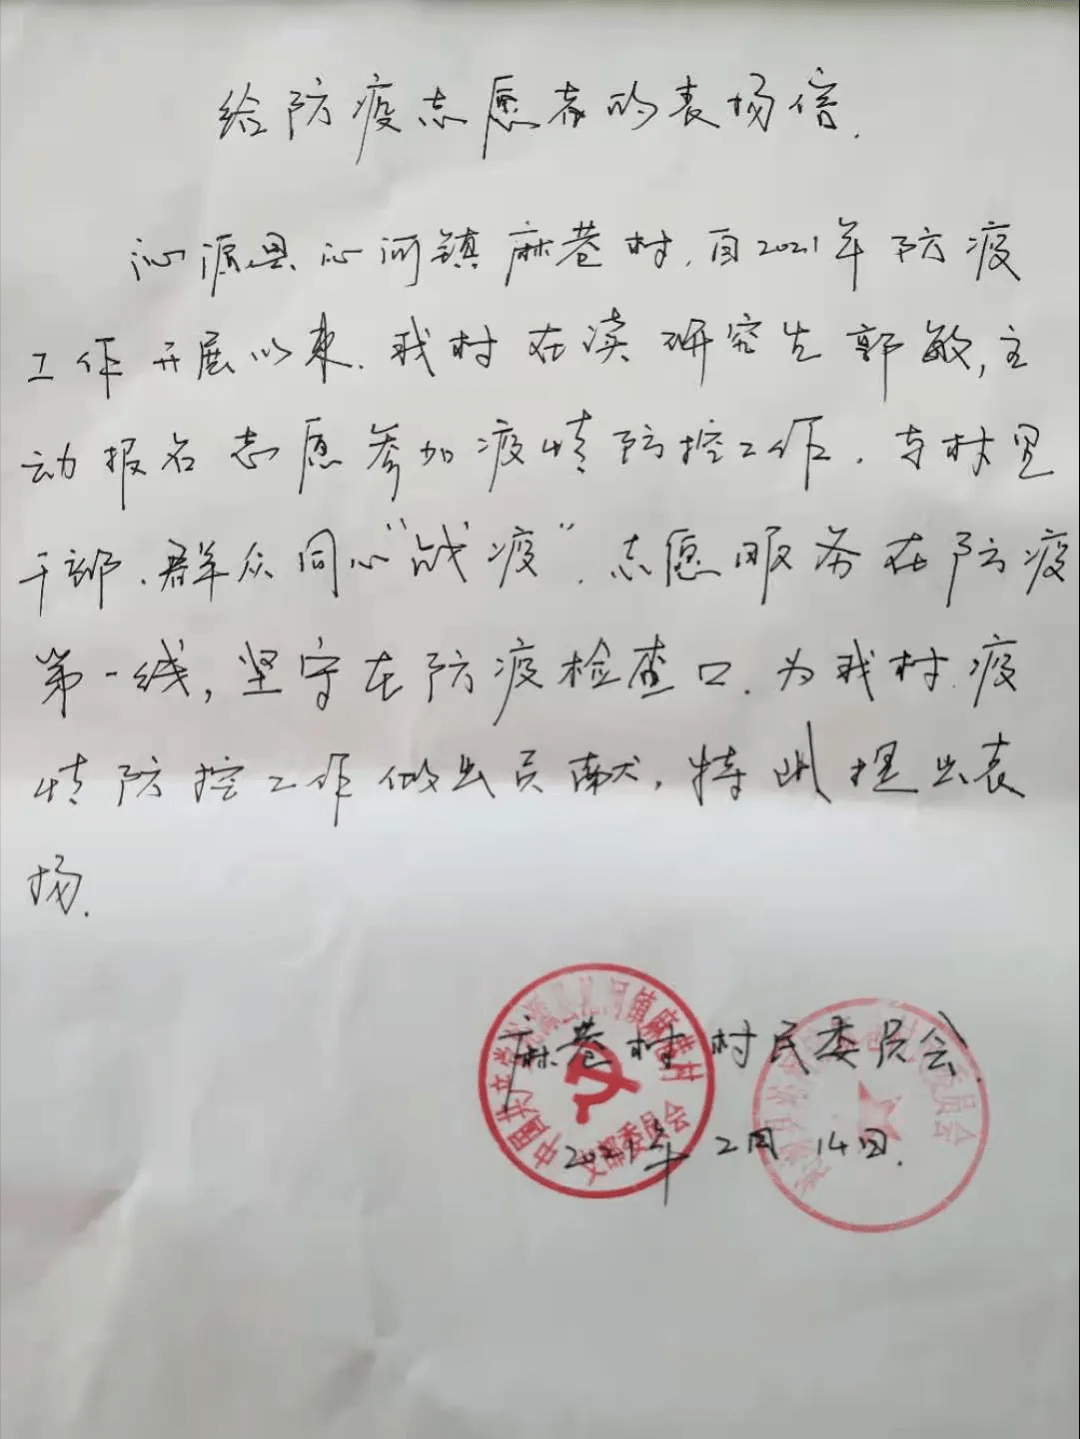 给防疫志愿者的表扬信.
沁源县沁河镇麻巷村,自2021年防疫
工作开展以来.我村在读研究生郭敏,主
动报名志愿参加疫情防控工作.与村里
干部、群众同心“战疫”.志愿服务在防疫
第一线,坚守在防疫检查口.为我村疫
情防控工作做出贡献.特此提出表
扬.
麻巷村村民委员会.
2021年2月14日.
中国共产党沁源县沁河镇麻巷村
支部委员会
委员会